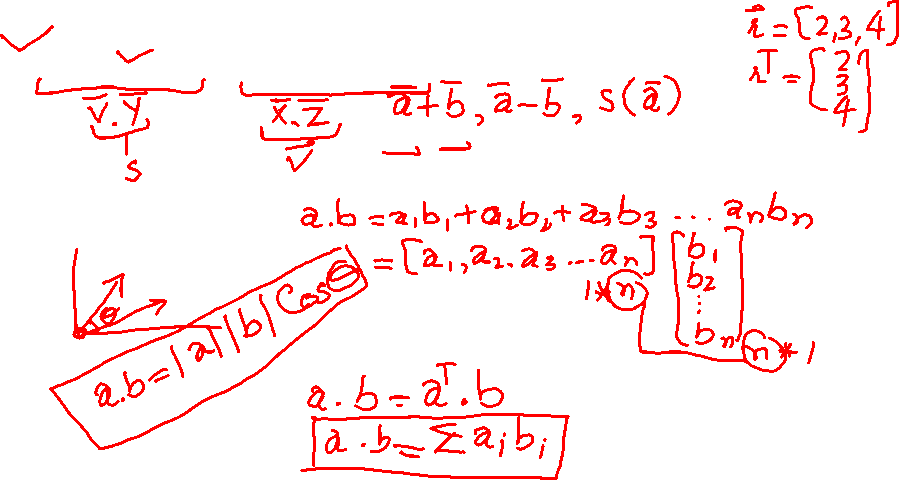 r̄ = [2,3,4]
rᵀ = [2
3
4]
v̄.ȳ x̄.z̄ ā+b̄, ā-b̄, s(ā)
s v̄
a.b = a₁b₁+a₂b₂+a₃b₃ ... aₙbₙ
= [a₁,a₂.a₃...aₙ] [b₁
b₂
:
bₙ]
1*n n*1
θ
a.b=|a||b|Cosθ
a.b = aᵀ.b
a.b = Σaᵢbᵢ